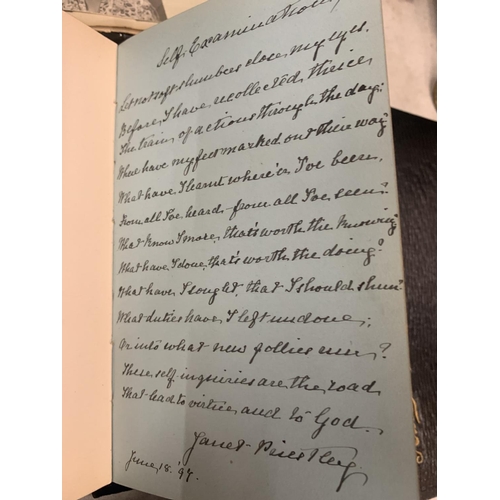 Self Examination
Let not soft slumber close my eyes,
Before I have recollected thrice
The train of actions through the day;
Where have my feet marked out their way?
What have I learnt where'er I've been,
From all I've heard - from all I've seen?
What know I more, that's worth the knowing
What have I done, that's worth the doing?
What have I sought, that I should shun?
What duties have I left undone;
Or into what new follies run?
These self inquiries are the road
That lead to virtue, and to God.
Janet Priestley
June 18. '97.